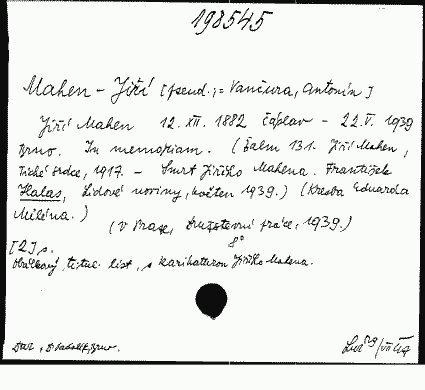 198545
Mahen - Jiří [pseud.; = Vančura, Antonín]
Jiří Mahen 12. XII. 1882 Čáslav - 22. V. 1939
Brno. In memoriam. (Žalm 131. Jiří Mahen,
Tiché srdce, 1917. - Smrt Jiřího Mahena. František
Halas, Lidové noviny, květen 1939.) (Kresba Eduarda
Miléna.)
(V Praze, Družstevní práce, 1939.)
8°
[2] s.
Obálkový, titul. list, s karikaturou Jiřího Mahena.
Dar, Brno.